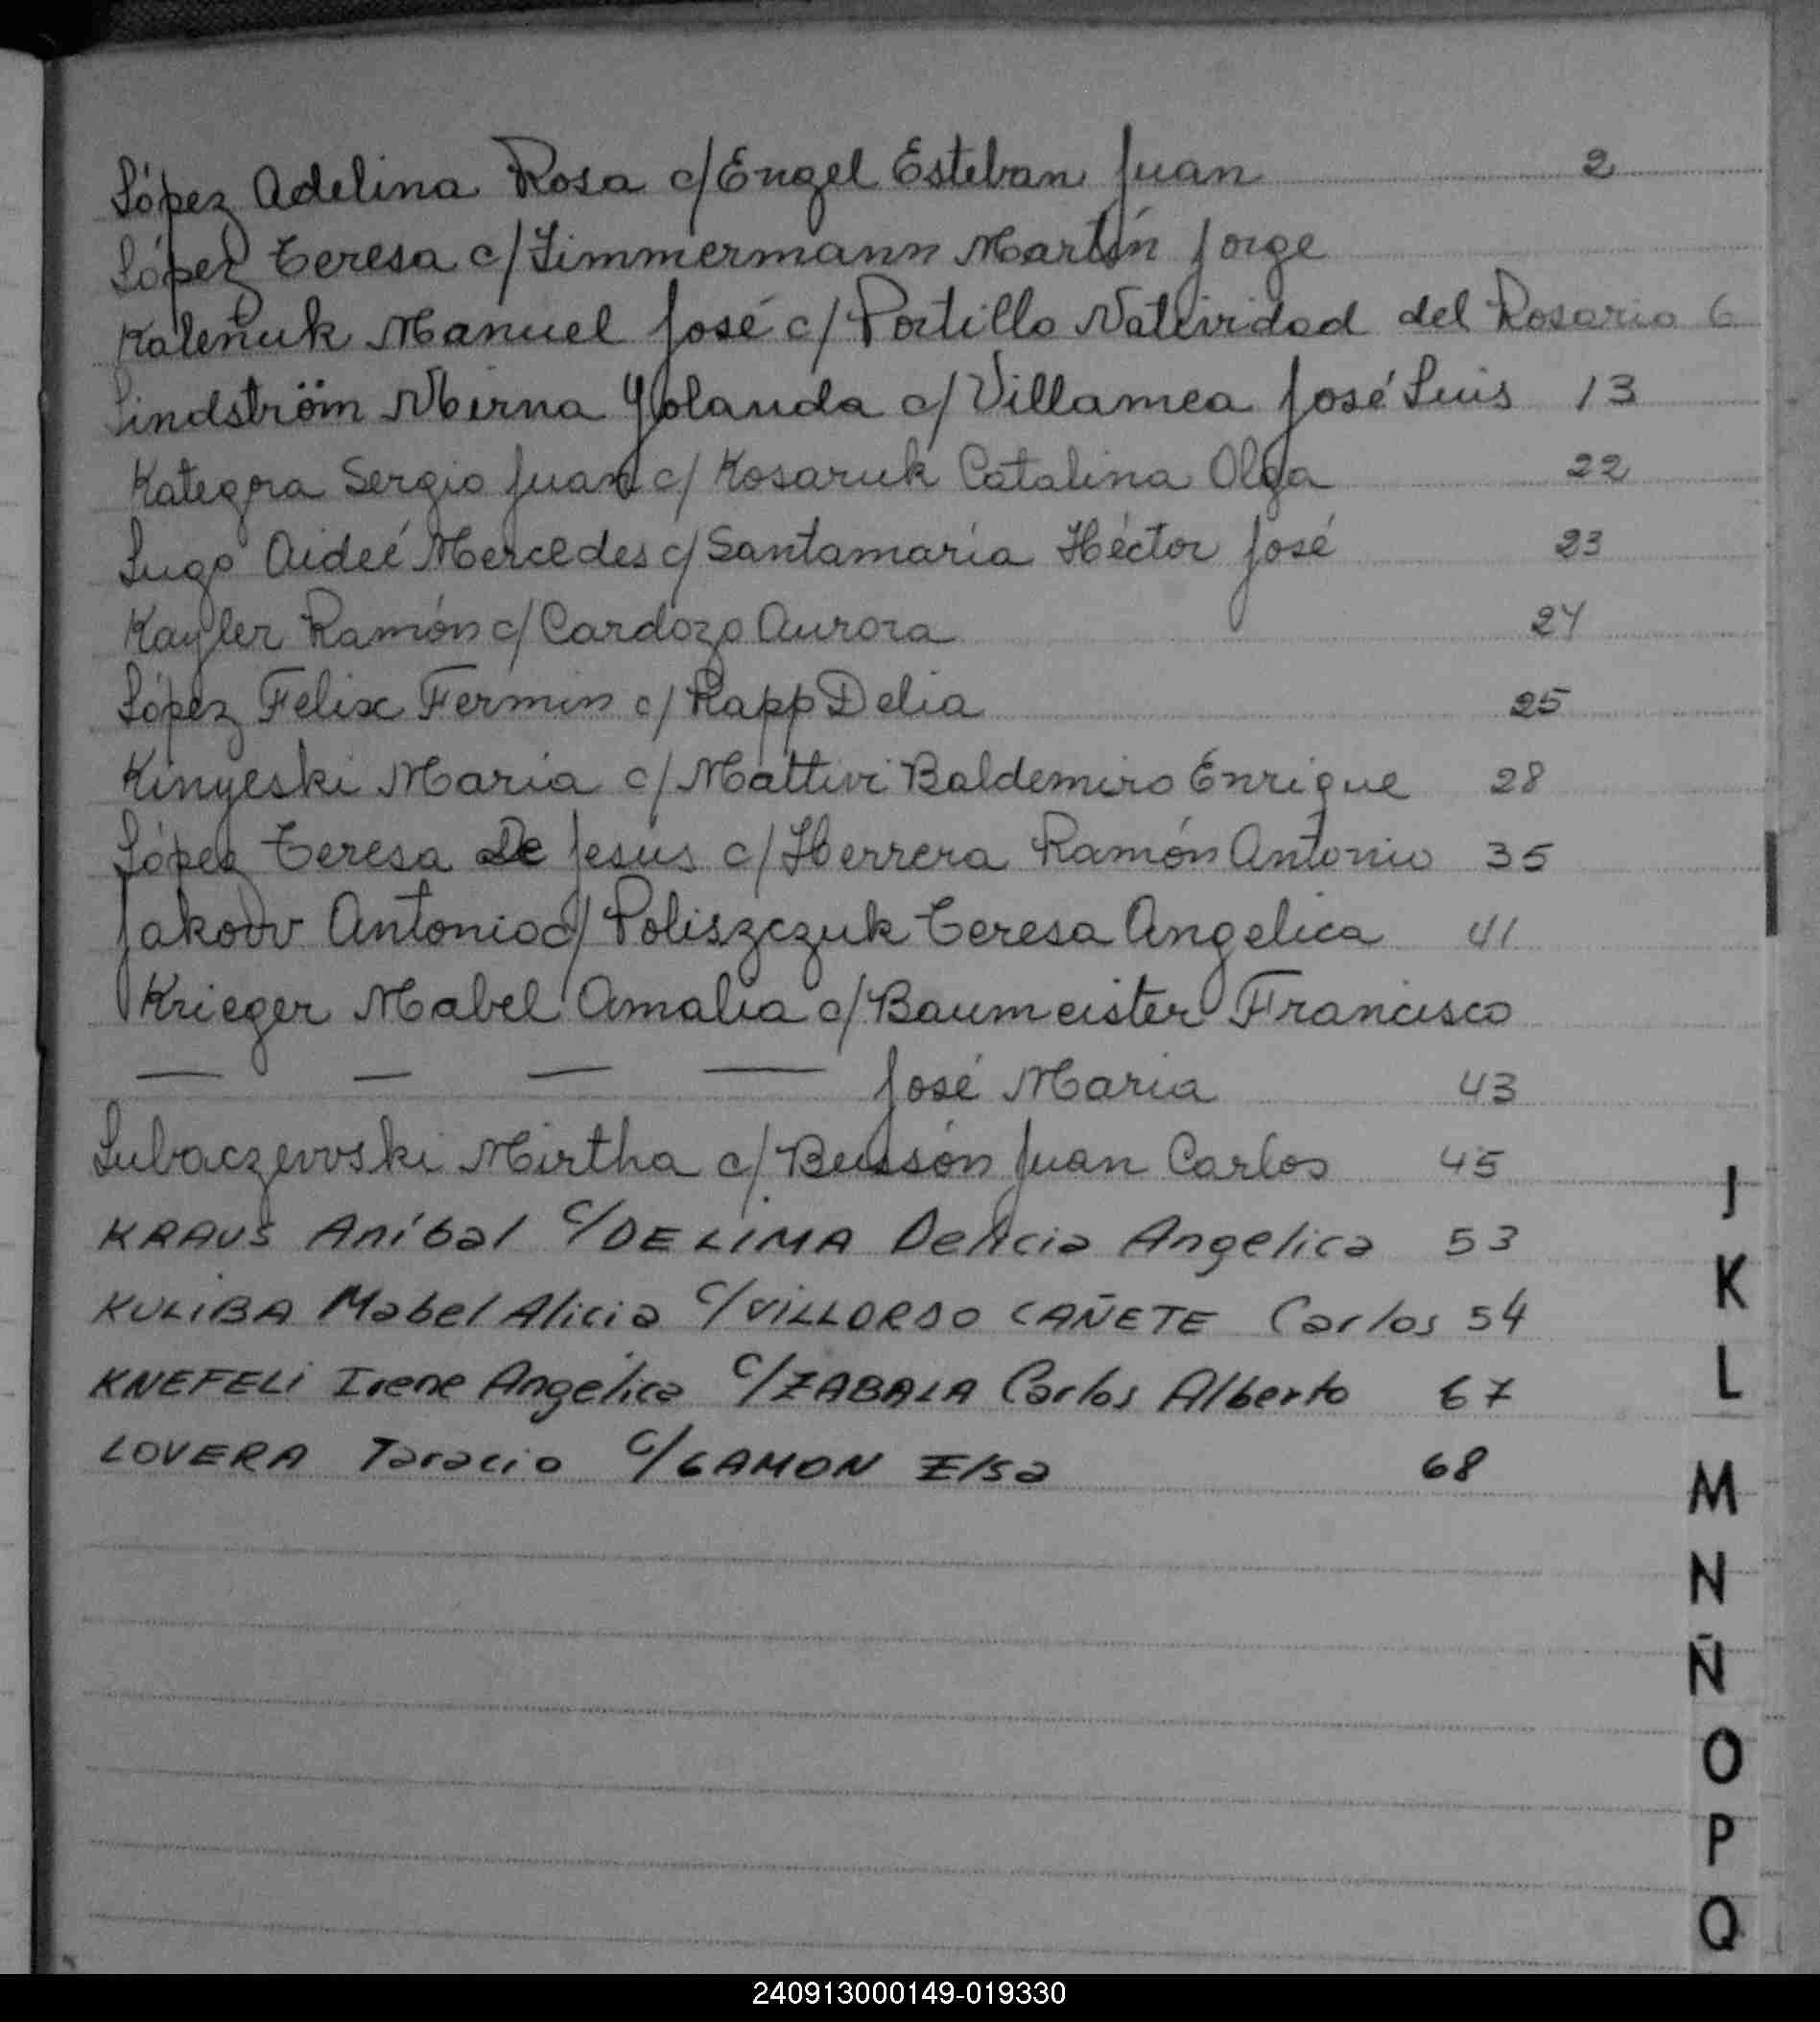 López Adelina Rosa c/ Engel Esteban Juan 2
López Teresa c/ Zimmermann Martín Jorge
Kaleñuk Manuel José c/ Portillo Natividad del Rosario 6
Lindström Mirna Yolanda c/ Villamea José Luis 13
Kategora Sergio Juan c/ Kosaruk Catalina Olga 22
Lugo Aideé Mercedes c/ Santamaría Héctor José 23
Kayler Ramón c/ Cardozo Aurora 24
López Felix Fermin c/ Rapp Delia 25
Kinyeski Maria c/ Mattivi Baldemiro Enrique 28
López Teresa De Jesús c/ Herrera Ramón Antonio 35
Jakow Antonio c/ Poliszczuk Teresa Angelica 41
Krieger Mabel Amalia c/ Baumeister Francisco
— — — — José Maria 43
Lubaczewski Mirtha c/ Beusson Juan Carlos 45
KRAUS Aníbal c/ DE LIMA Delicia Angelica 53
KULIBA Mabel Alicia c/ VILLORDO CAÑETE Carlos 54
KNEFELI Irene Angelica c/ ZABALA Carlos Alberto 67
LOVERA Taracio c/ GAMON Elsa 68
J
K
L
M
N
Ñ
O
P
Q
240913000149-019330